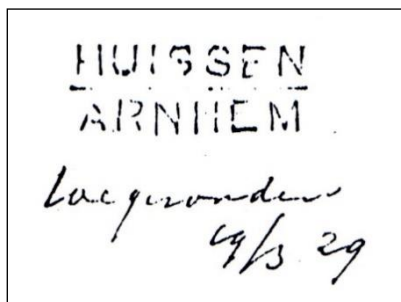 HUISSEN
ARNHEM
toegezonden
19/3 29